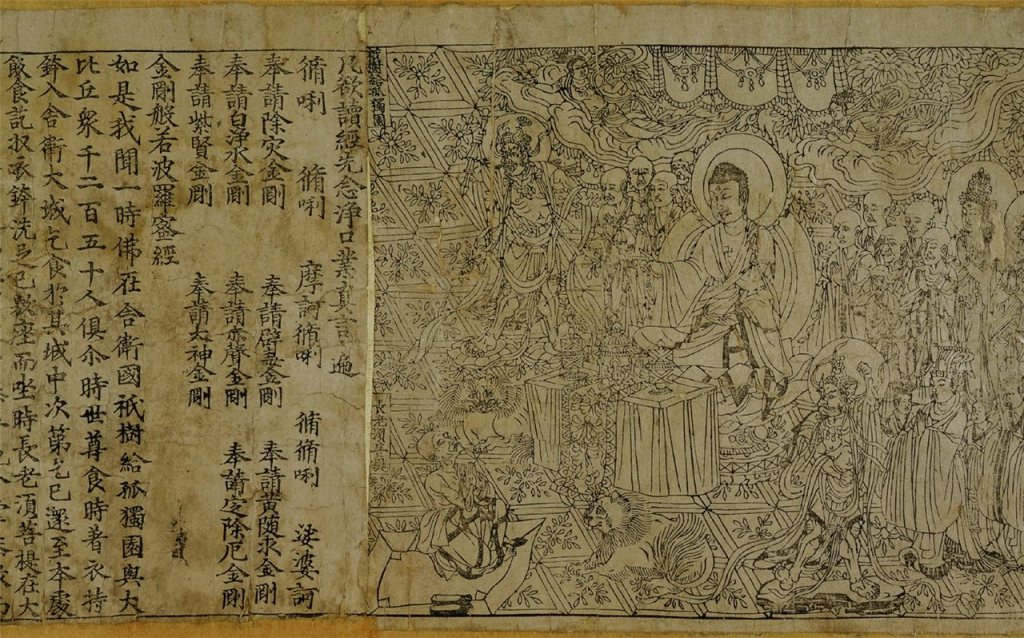 祇樹給孤獨園
長老須菩提
凡欲讀經先念淨口業真言一遍
脩唎 脩唎 摩訶脩唎 脩脩唎 娑婆訶
奉請除灾金剛 奉請辟毒金剛 奉請黄随求金剛
奉請白淨水金剛 奉請赤聲金剛 奉請定除厄金剛
奉請紫賢金剛 奉請大神金剛
金剛般若波羅蜜經
如是我聞一時佛在舍衛國祇樹給孤獨園與大
比丘衆千二百五十人俱尒時世尊食時著衣持
鉢入舍衛大城乞食於其城中次第乞已還至本處
飯食訖収衣鉢洗足已敷座而坐時長老須菩提在大